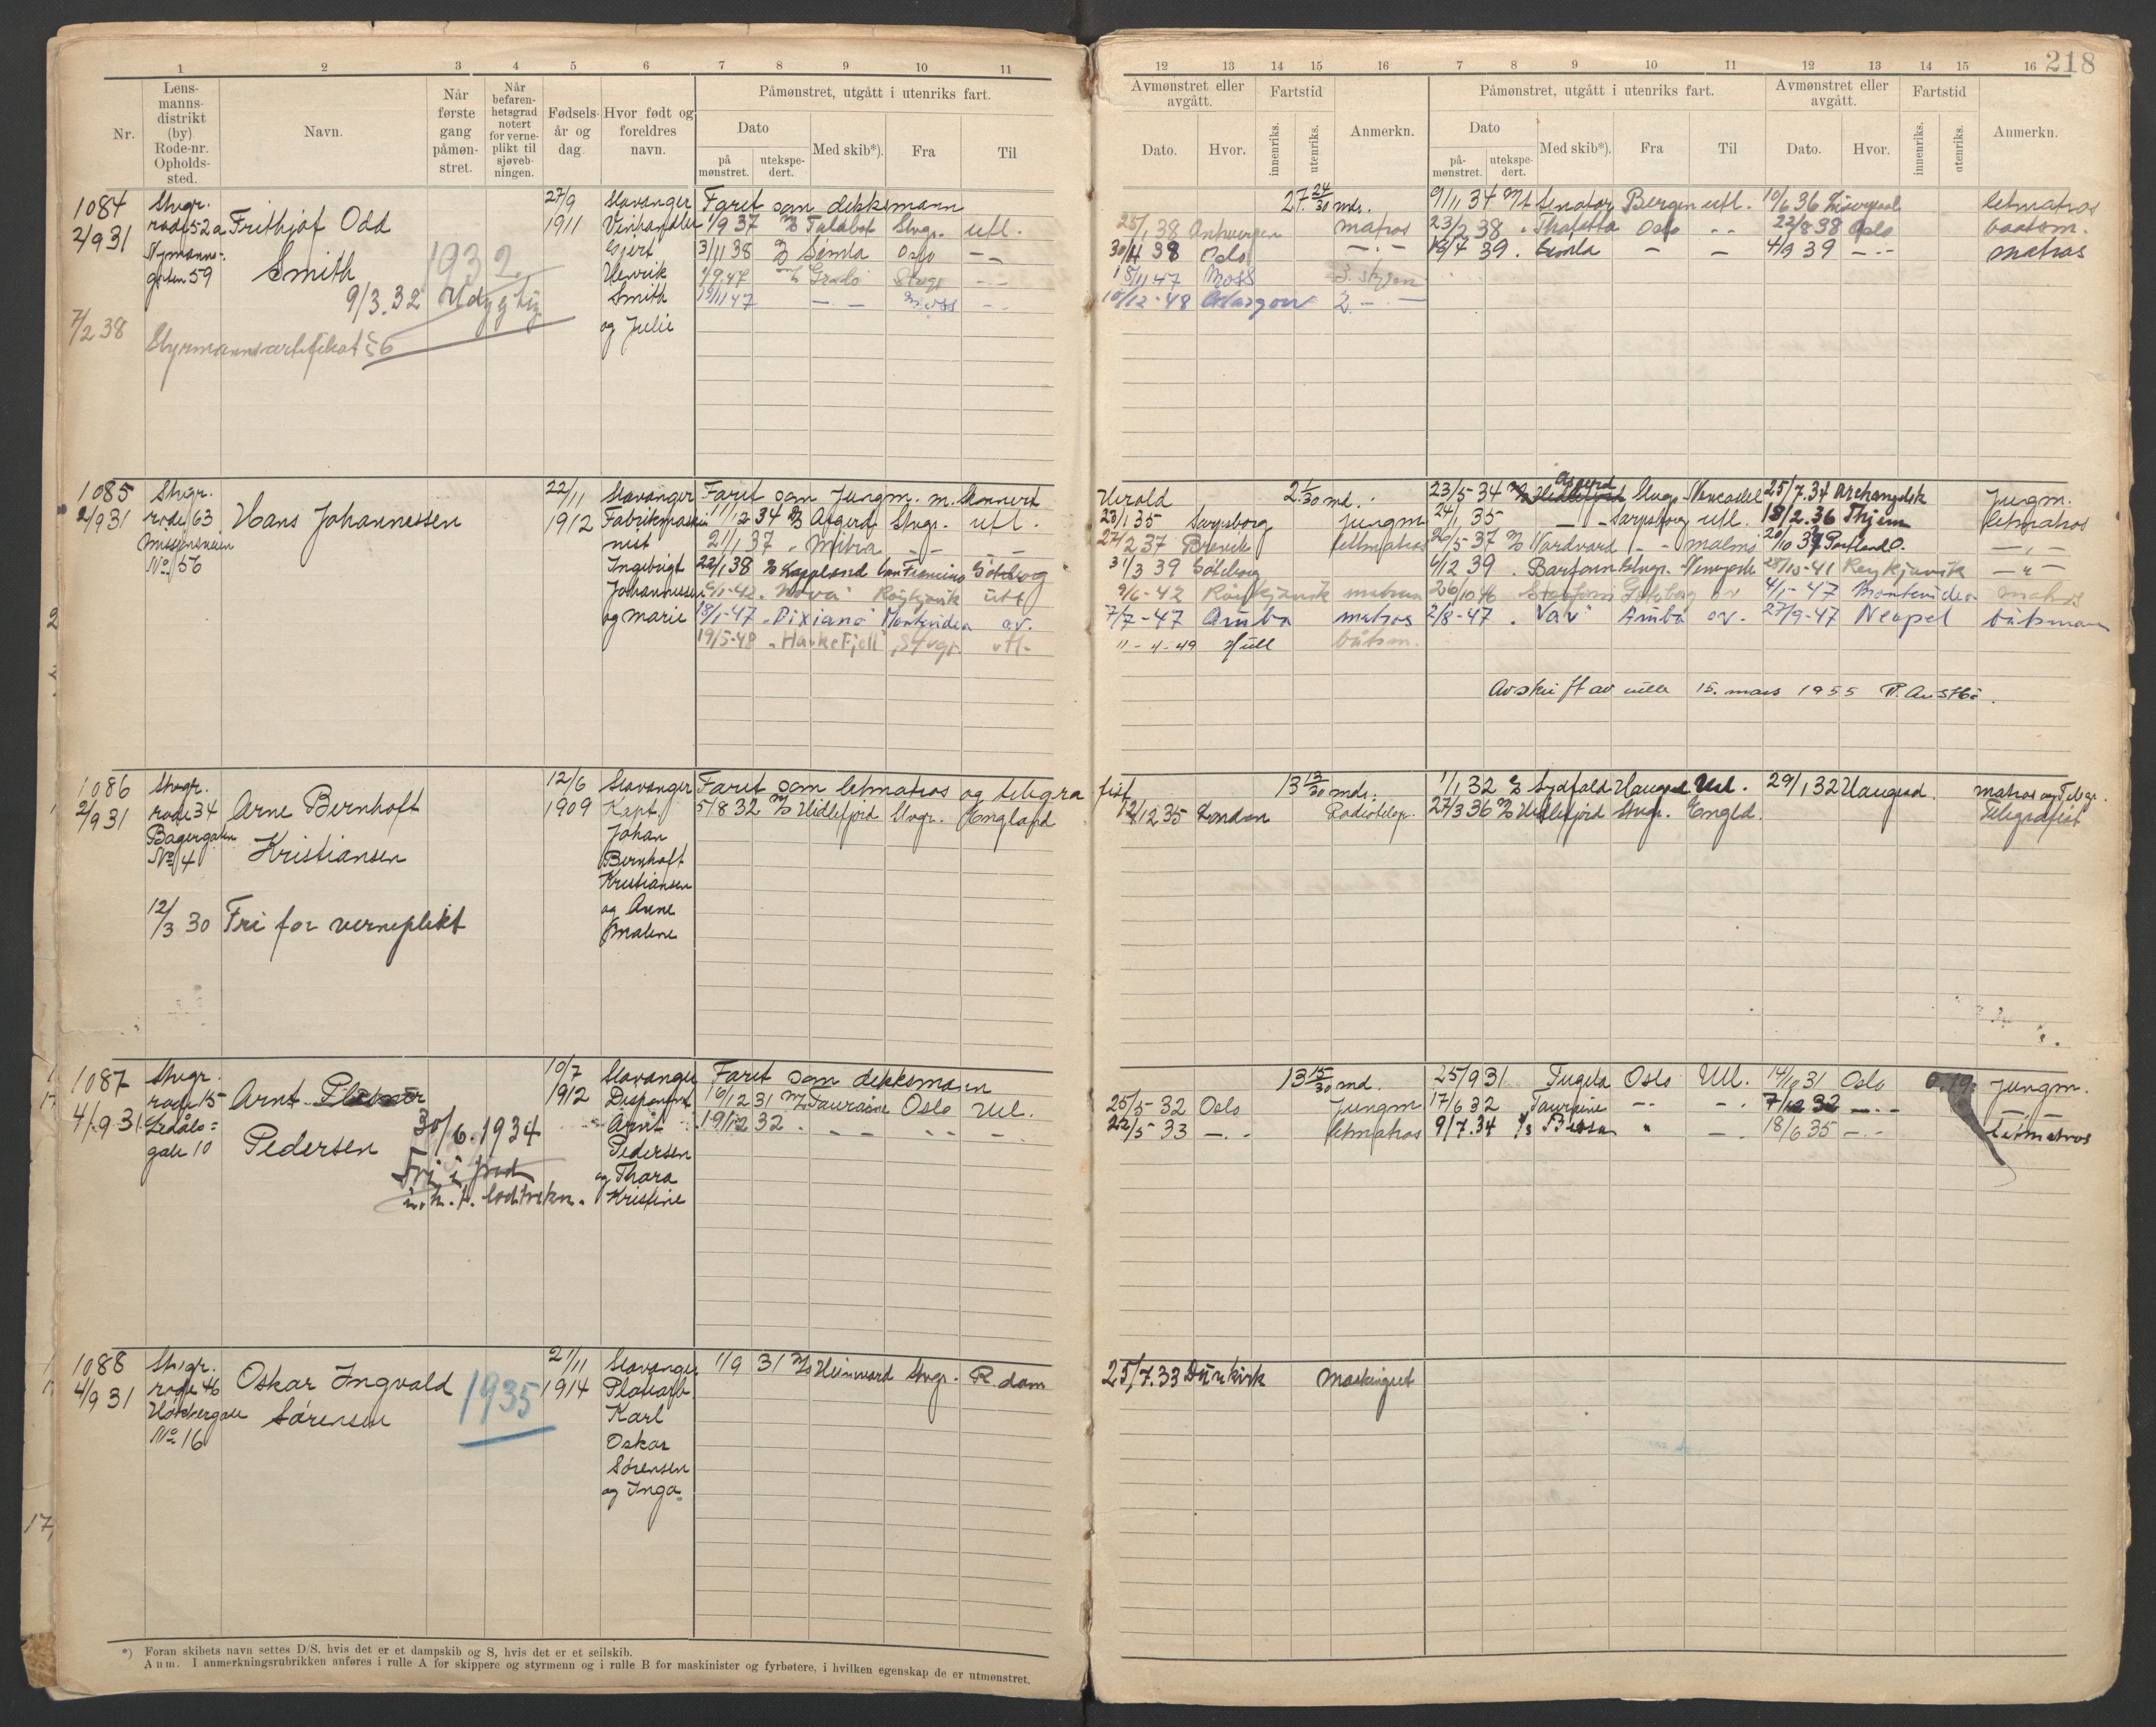 218
1 2 3 4 5 6 7 8 9 10 11
Nr.
Lens-
manns-
distrikt
(by)
Rode-nr.
Opholds-
sted.
Navn.
Når
første
gang
påmøn-
stret.
Når
befaren-
hetsgrad
notert
for verne-
plikt til
sjøveb-
ningen.
Fødsels-
år og
dag.
Hvor født og
foreldres
navn.
Påmønstret, utgått i utenriks fart.
Dato
på
mønstret.
utekspe-
dert.
Med skib*).
Fra
Til
12 13 14 15 16 7 8 9 10 11 12 13 14 15 16
Avmønstret eller
avgått.
Dato.
Hvor.
Fartstid
innenriks.
utenriks.
Anmerkn.
Påmønstret, utgått i utenriks fart.
Dato
på-
mønstret.
utekspe-
dert.
Med skib*).
Fra
Til
Avmønstret eller
avgått.
Dato.
Hvor.
Fartstid
innenriks.
utenriks.
Anmerkn.
1084
2/9 31
Stvgr.
rode 52a
gaten 59
Frithjof Odd
Smith
1932
9/3.32 Udygtig
7/2 38
27/9
1911
Stavanger
Gjert
Henrik
Smith
og Julie
Faret som dekksmann
1/9 37 Talabot Stvgr. utl.
3/11 38 Simla Oslo — —
27 24/30 mdr.
25/1 38 Antwerpen matros
30/11 38 Oslo —·—
15/11 47 Moss 3. styrm
10/12-48 Glasgow 2 — —
9/11 34 Senator Bergen utl. 10/6 36 letmatros
23/2 38 Oslo 22/8 38 Oslo baatsm.
18/7 39 . Simla — — 4/9 39 —·— matros
1085
2/9 31
Stvgr.
rode 63
No 56
Hans Johannessen
22/11
1912
Stavanger
Ingebrigt
Johannessen
og Marie
Faret som Jungm. m. Skonnert
Herold 2 1/30 md.
11/12 34 Asgerd Stvgr. utl.
23/1 35 Sarpsborg Jungm
21/1 37 . Mitra — — —
27/2 37 Brevik letmatros
22/1 38 San Francisco Göteborg
31/3 39 Göteborg
9/1-42 . "Nova" Reykjavik utl
9/6-42 Reykjavik matros
18/1-47 "Pixiano" Montevideo ov.
7/7-47 Aruba matros
19/5-48 "Haukefjell" Stvgr. utl.
11-4-49 Hull båtsm.
23/5-34 Asgerd Stvgr. Newcastle 25/7.34 Archangelsk Jungm.
24/1 35 — Sarpsborg utl. 18/2.36 letmatros
26/5-37 Nordvard — — Malmö 20/10 37 Portland O. —„—
6/12 39 . Stvgr. Newyork 28/10-41 Reykjavik —„—
26/10 46 Göteborg ov 4/1-47 Montevideo matros
2/8-47 . "Vav" Aruba ov. 27/9-47 Neapel båtsmann
Avskrift av rulle 15. mars 1955
1086
2/9 31
Stvgr.
rode 34
Bagergaten
No 4
Arne Bernhoft
Kristiansen
12/3 30 Fri for verneplikt
12/6
1909
Stavanger
Kapt.
Johan
Bernhoft
Kristiansen
og Anne
Malene
Faret som letmatros og telegra
fist 13 13/30 mdr.
5/8 32 M/S Hidlefjord Stvgr. England
12/12 35 London Radiotelegr.
1/1 32 Sydfold Haugesd Utl. 29/1 32 Haugesd. matros og Telegr.
27/3 36 M/S Hidlefjord Stvgr. Engld. Telegrafist
1087
4/9 31
Stvgr.
rode 15
Ledåls=
gate 10
Arnt
Pedersen
30/6.1934
Fri i fred
i. h. t. lodtrekn.
10/7
1912
Stavanger
Disponent
Arnt
Pedersen
og Thora
Kristine
Faret som dekksmann
13 15/30 md.
16/12 31 Touraine Oslo Utl.
25/5-32 Oslo Jungm
19/12 32
22/5 33 —·— letmatros
25/9 31 Tugela Oslo Utl. 14/10 31 Oslo Jungm.
17/6 32 Touraine 7/12 32 —·— —·—
9/7.34 18/6 35 —·— letmatros
1088
4/9 31
Stvgr.
rode 46
No 16
Oskar Ingvald
Sørensen
1935
21/11
1914
Stavanger
Platearb.
Karl
Oskar
Sørensen
og Inga
1/9 31 M/S Heimvard Stvgr. R.dam
25/7.33 Dünkirk Maskingutt
*) Foran skibets navn settes D/S, hvis det er et dampskib og S, hvis det er et seilskib.
Anm. I anmerkningsrubrikken anføres i rulle A for skippere og styrmenn og i rulle B for maskinister og fyrbøtere, i hvilken egenskap de er utmønstret.